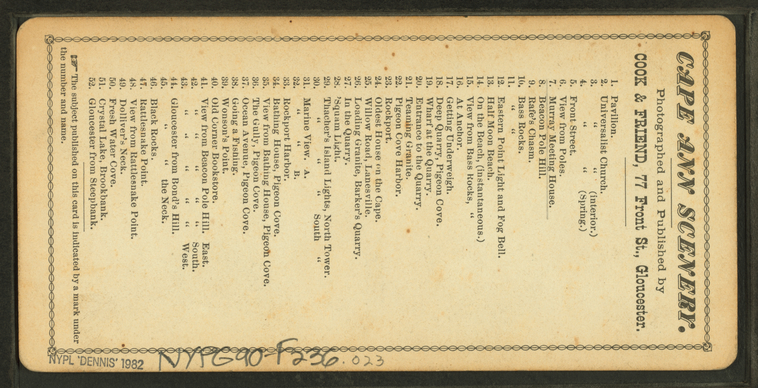 CAPE ANN SCENERY.
Photographed and Published by
COOK & FRIEND, 77 Front St., Gloucester.
1. Pavilion.
2. Universalist Church.
3. " " (Interior.)
4. " " (Spring.)
5. Front Street.
6. View from Poles.
7. Murray Meeting House.
8. Beacon Pole Hill.
9. Rafe's Chasm.
10. Bass Rocks.
11. " "
12. Eastern Point Light and Fog Bell.
13. Half Moon Beach.
14. On the Beach, (Instantaneous.)
15. View from Bass Rocks, "
16. At Anchor.
17. Getting Underweigh.
18. Deep Quarry, Pigeon Cove.
19. Wharf at the Quarry.
20. Entrance to the Quarry.
21. Teaming Granite.
22. Pigeon Cove Harbor.
23. Rockport.
24. Oldest House on the Cape.
25. Willow Road, Lanesville.
26. Loading Granite, Barker's Quarry.
27. In the Quarry.
28. Squam Light.
29. Thacher's Island Lights, North Tower.
30. " " " South "
31. Marine View. A.
32. " " B.
33. Rockport Harbor.
34. Bathing House, Pigeon Cove.
35. View from Bathing House, Pigeon Cove.
36. The Gully, Pigeon Cove.
37. Ocean Avenue, Pigeon Cove.
38. Going a Fishing.
39. Wonson's Point.
40. Old Corner Bookstore.
41. View from Beacon Pole Hill. East.
42. " " " " South.
43. " " " " West.
44. Gloucester from Bond's Hill.
45. " " the Neck.
46. Black Rocks.
47. Rattlesnake Point.
48. View from Rattlesnake Point.
49. Dolliver's Neck.
50. Fresh Water Cove.
51. Crystal Lake, Brookbank.
52. Gloucester from Steepbank.
☞ The subject published on this card is indicated by a mark under
the number and name.
NYPL 'DENNIS' 1982
NYPG90-F236.023